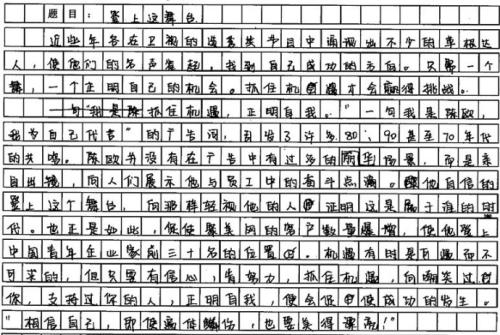 题目：登上这舞台
近些年各在卫视的选秀类节目中涌现出不少的草根达
人，使他们的名声鹊起，找到自己成功的方向。只需一个
舞，一个正明自己的机会。抓住机遇才会赢得挑战。
一句"我是陈抓住机遇，正明自我。""一句我是陈欧，
我为自己代言"的广告词，引发了许多80、90甚至70年代
的共鸣。陈欧并没有在广告中有过多的华场景，而是亲
自出镜，向人们展示他与员工中的奋斗点滴。他自信的
登上这个舞台，向那样轻视他的人证明这是属于谁的时
代。也正是如此，促使聚美网的客户数量爆增，使他登上
中国青年企业家前三十名的位置。机遇有的是可遇而不
可求的，但只要有信心，肯努力，抓住机遇，向嘲笑过
你，支持过你的人，正明自我，便会促使成功的发生。
"相信自己，即使遍体鳞伤，也要笑得漂亮！"